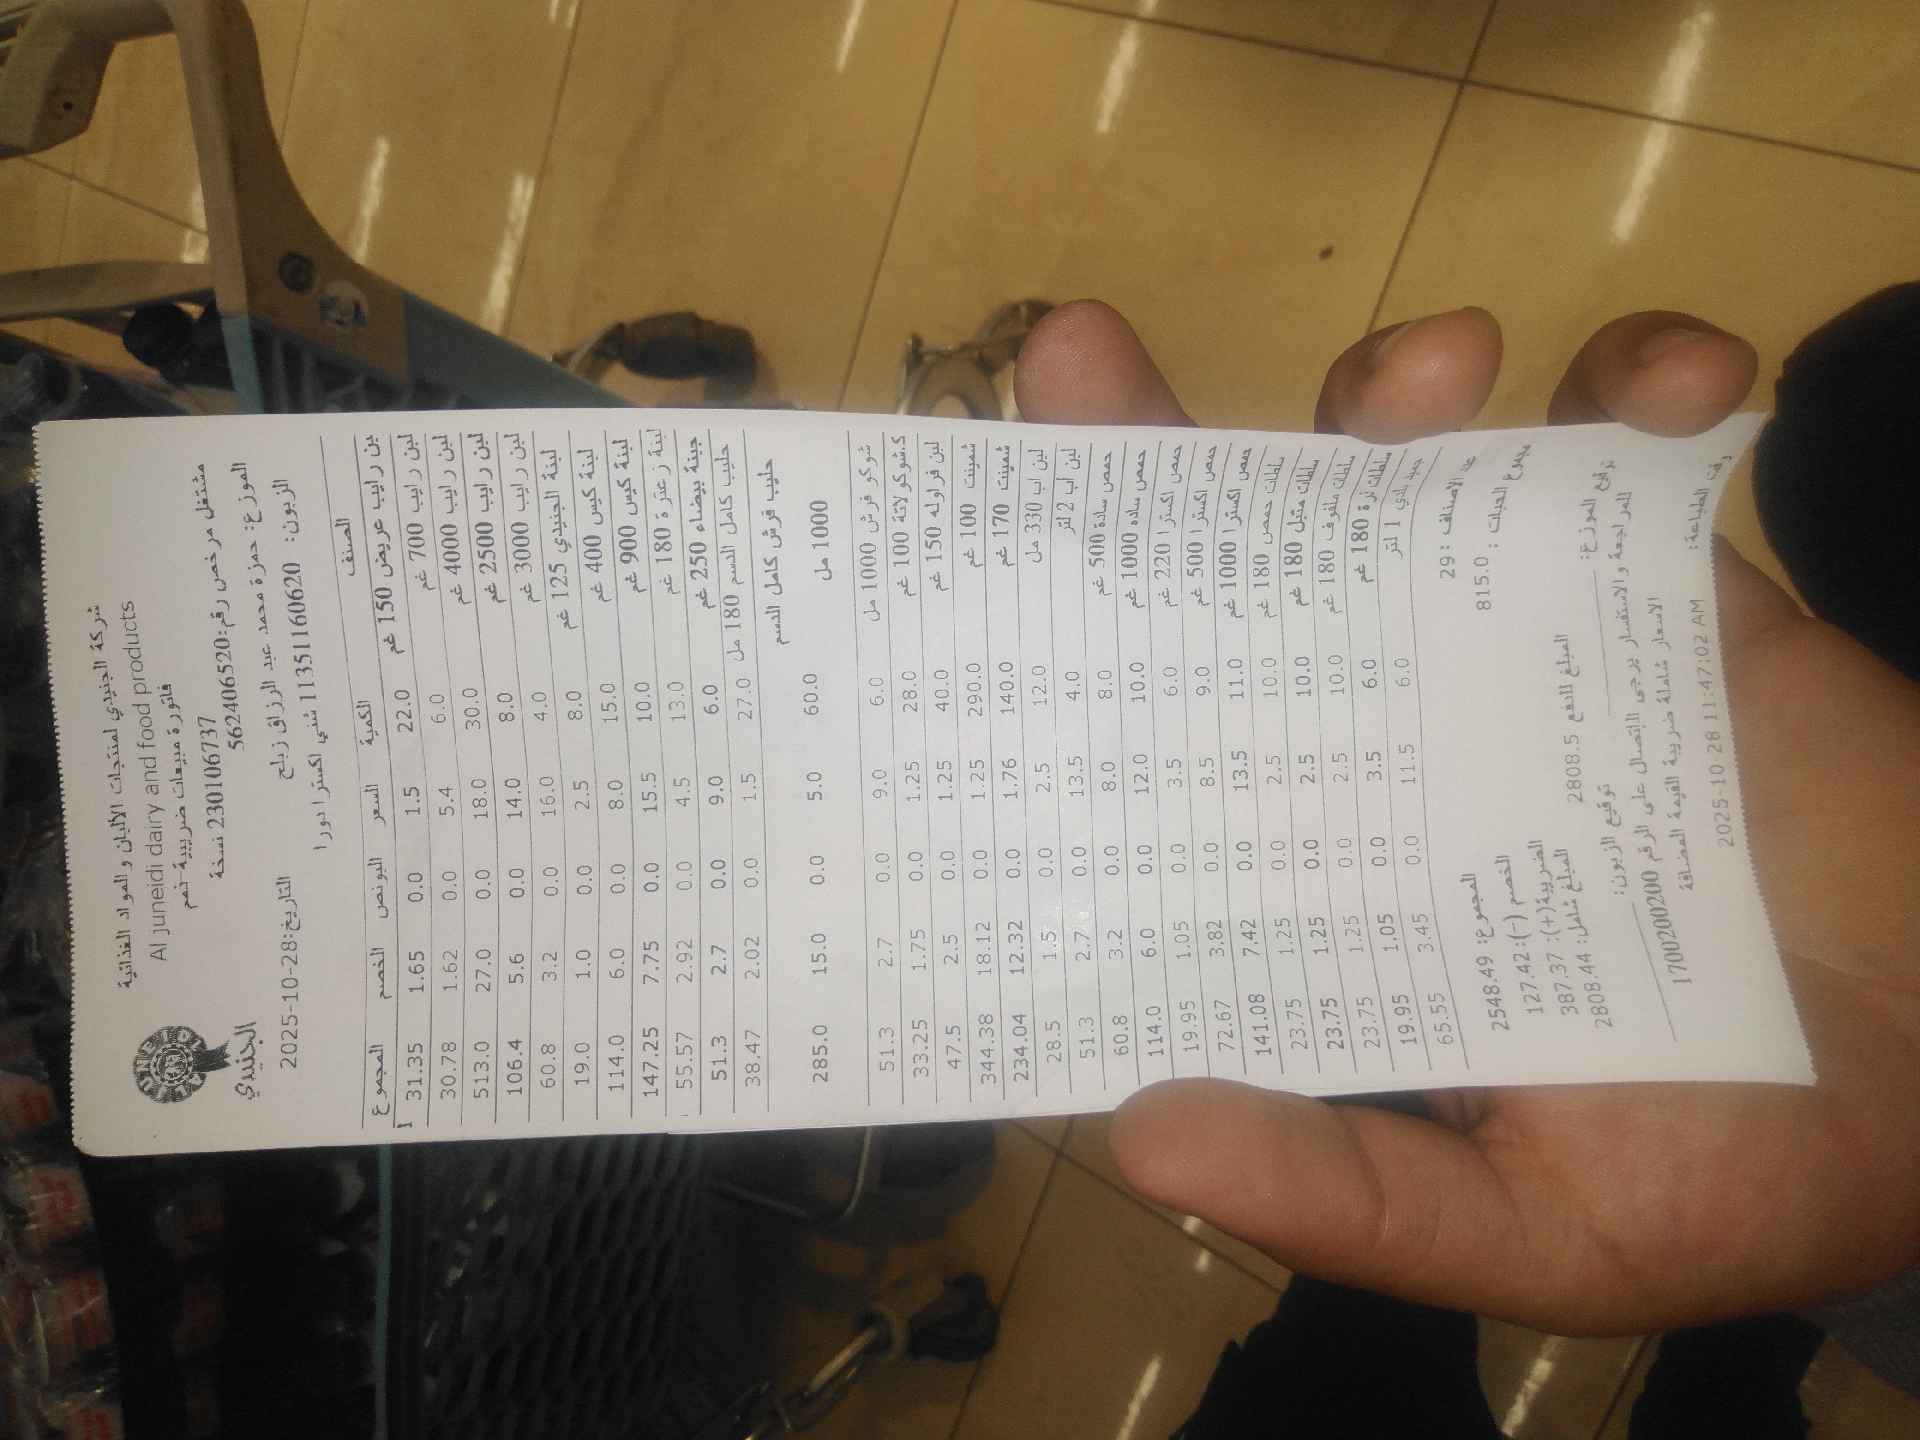 شركة الجنيدي لمنتجات الألبان و المواد الغذائية
Al juneidi dairy and food products
فاتورة مبيعات ضريبية-ذمم
JUNEIDI
الجنيدي
230106737 نسخة
مشتغل مرخص رقم:562406520
الموزع: حمزة محمد عبد الرزاق زبلح
التاريخ:28-10-2025
الزبون: 11351160620 شني اكسترا دورا
الصنف الكمية السعر البونص الخصم المجموع
بن رايب عريض 150 غم 22.0 1.5 0.0 1.65 31.35
لبن رايب 700 غم 6.0 5.4 0.0 1.62 30.78
لبن رايب 4000 غم 30.0 18.0 0.0 27.0 513.0
لبن رايب 2500 غم 8.0 14.0 0.0 5.6 106.4
لبن رايب 3000 غم 4.0 16.0 0.0 3.2 60.8
لبنة الجنيدي 125 غم 8.0 2.5 0.0 1.0 19.0
لبنة كيس 400 غم 15.0 8.0 0.0 6.0 114.0
لبنة كيس 900 غم 10.0 15.5 0.0 7.75 147.25
لبنة زعترة 180 غم 13.0 4.5 0.0 2.92 55.57
جبنة بيضاء 250 غم 6.0 9.0 0.0 2.7 51.3
حليب كامل الدسم 180 مل 27.0 1.5 0.0 2.02 38.47
حليب فرش كامل الدسم
1000 مل 60.0 5.0 0.0 15.0 285.0
شوكو فرش 1000 مل 6.0 9.0 0.0 2.7 51.3
ك.شوكولاتة 100 غم 28.0 1.25 0.0 1.75 33.25
لبن فراوله 150 غم 40.0 1.25 0.0 2.5 47.5
شمينت 100 غم 290.0 1.25 0.0 18.12 344.38
شمينت 170 غم 140.0 1.76 0.0 12.32 234.04
لبن اب 330 مل 12.0 2.5 0.0 1.5 28.5
لبن اب 2 لتر 4.0 13.5 0.0 2.7 51.3
حمص سادة 500 غم 8.0 8.0 0.0 3.2 60.8
حمص ساده 1000 غم 10.0 12.0 0.0 6.0 114.0
حمص اكسترا 220 غم 6.0 3.5 0.0 1.05 19.95
حمص اكسترا 500 غم 9.0 8.5 0.0 3.82 72.67
حمص اكسترا 1000 غم 11.0 13.5 0.0 7.42 141.08
سلطات حمص 180 غم 10.0 2.5 0.0 1.25 23.75
سلطات متبل 180 غم 10.0 2.5 0.0 1.25 23.75
سلطات ملفوف 180 غم 10.0 2.5 0.0 1.25 23.75
سلطات ذرة 180 غم 6.0 3.5 0.0 1.05 19.95
بلدي 1 لتر 6.0 11.5 0.0 3.45 65.55
عدد الاصناف : 29
المجموع: 2548.49
مجموع الحبات : 815.0
الخصم (-): 127.42
الضريبة(+): 387.37
المبلغ شامل: 2808.44
المبلغ للدفع 2808.5
توقيع الموزع:
توقيع الزبون:
للمراجعة والاستفسار يرجى الاتصال على الرقم 1700200200
الاسعار شاملة ضريبة القيمة المضافة
وقت الطباعة: 2025-10-28 11:47:02 AM